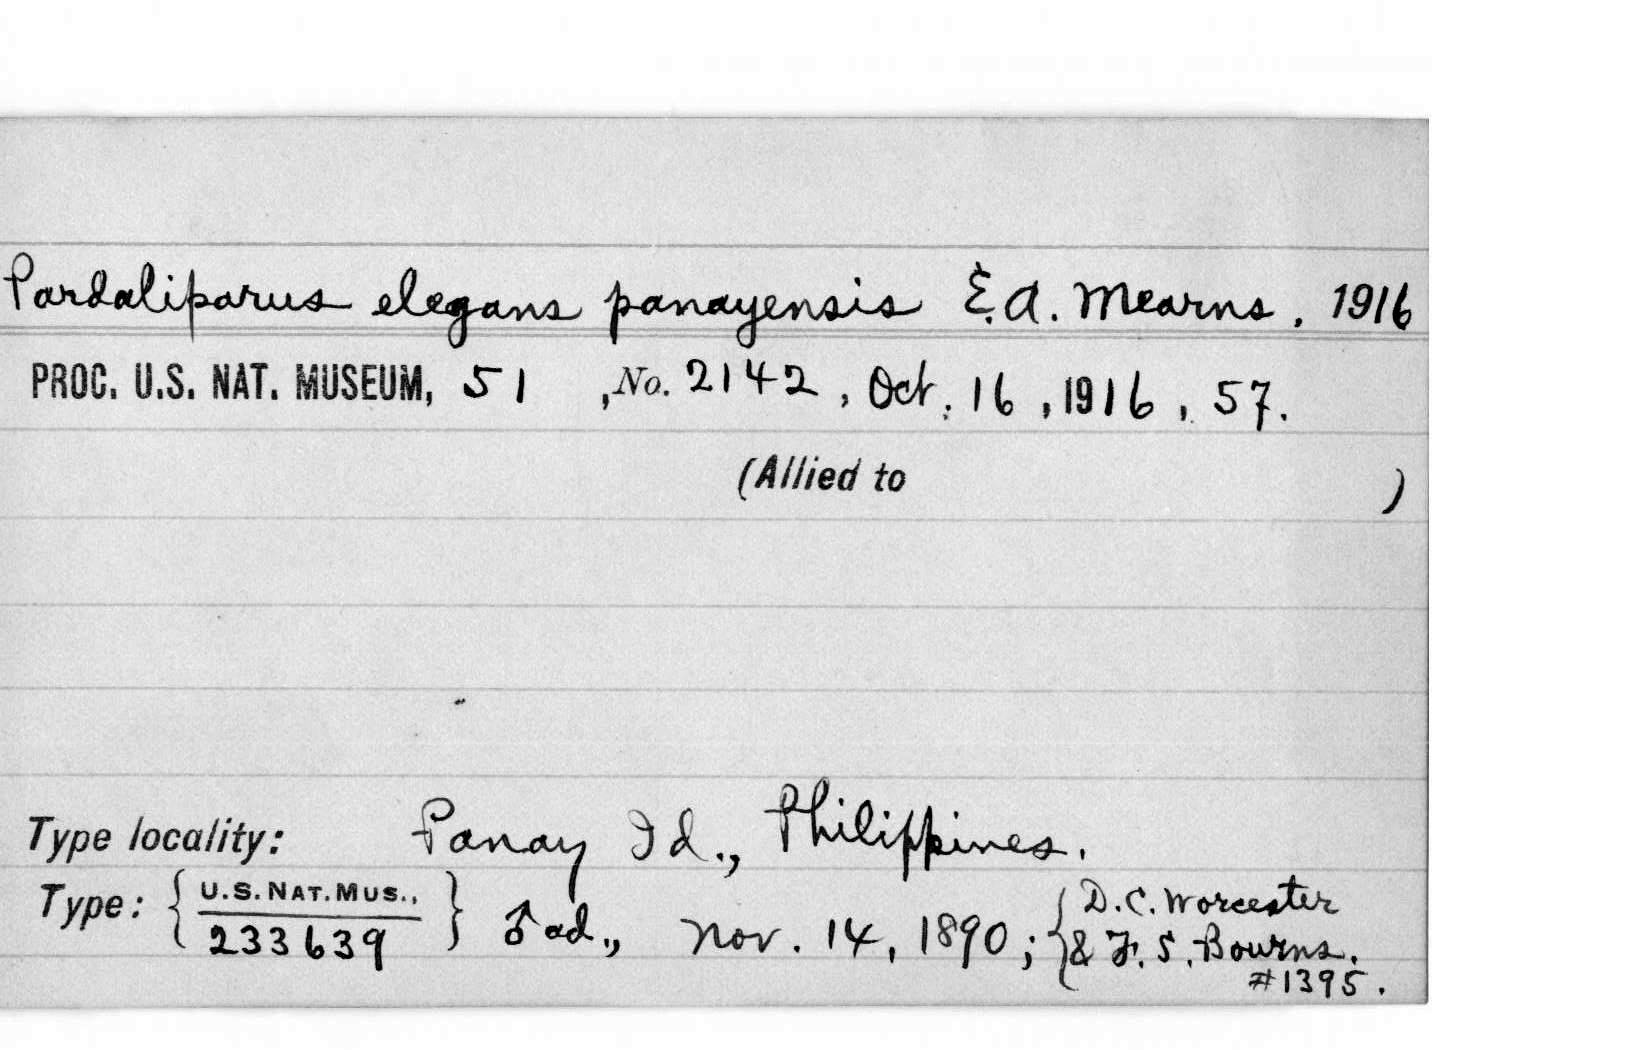 Pardaliparus elegans panayensis E.A. Mearns, 1916
PROC. U.S. NAT. MUSEUM, 51, No. 2142, Oct. 16, 1916, 57.
(Allied to )
Type locality: Panay Id., Philippines.
Type: { U.S. NAT. MUS., 233639 } ♂ ad., Nov. 14, 1890; { D.C. Worcester
& F. S. Bourns.
#1395.